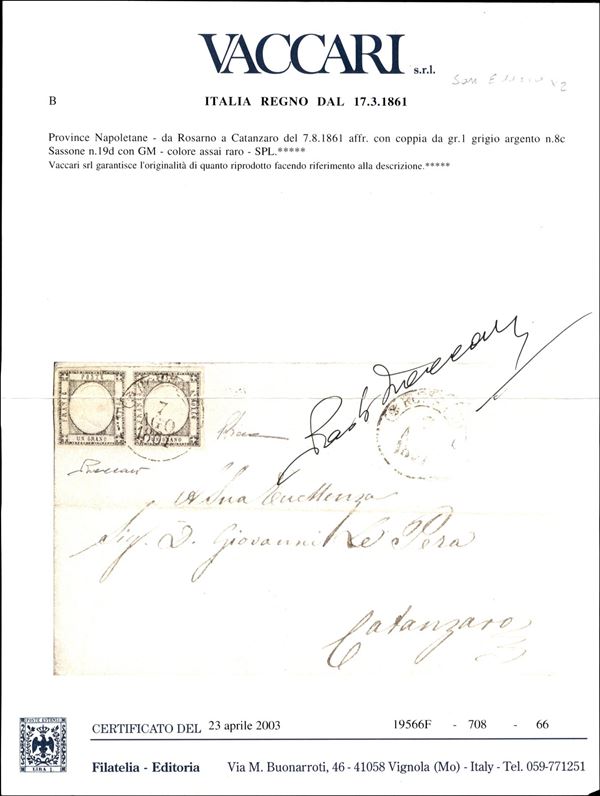 VACCARI s.r.l.
B ITALIA REGNO DAL 17.3.1861
Province Napoletane - da Rosarno a Catanzaro del 7.8.1861 affr. con coppia da gr.1 grigio argento n.8c
Sassone n.19d con GM - colore assai raro - SPL.*****
Vaccari srl garantisce l'originalità di quanto riprodotto facendo riferimento alla descrizione.*****
POSTA
FRANCO
UN GRANO
7
AGO
1861
GRANO
A Sua Eccellenza
Sig. D. Giovanni Le Pera
Catanzaro
POSTE ESTENSI
LIRA 1
CERTIFICATO DEL 23 aprile 2003 19566F - 708 - 66
Filatelia - Editoria Via M. Buonarroti, 46 - 41058 Vignola (Mo) - Italy - Tel. 059-771251